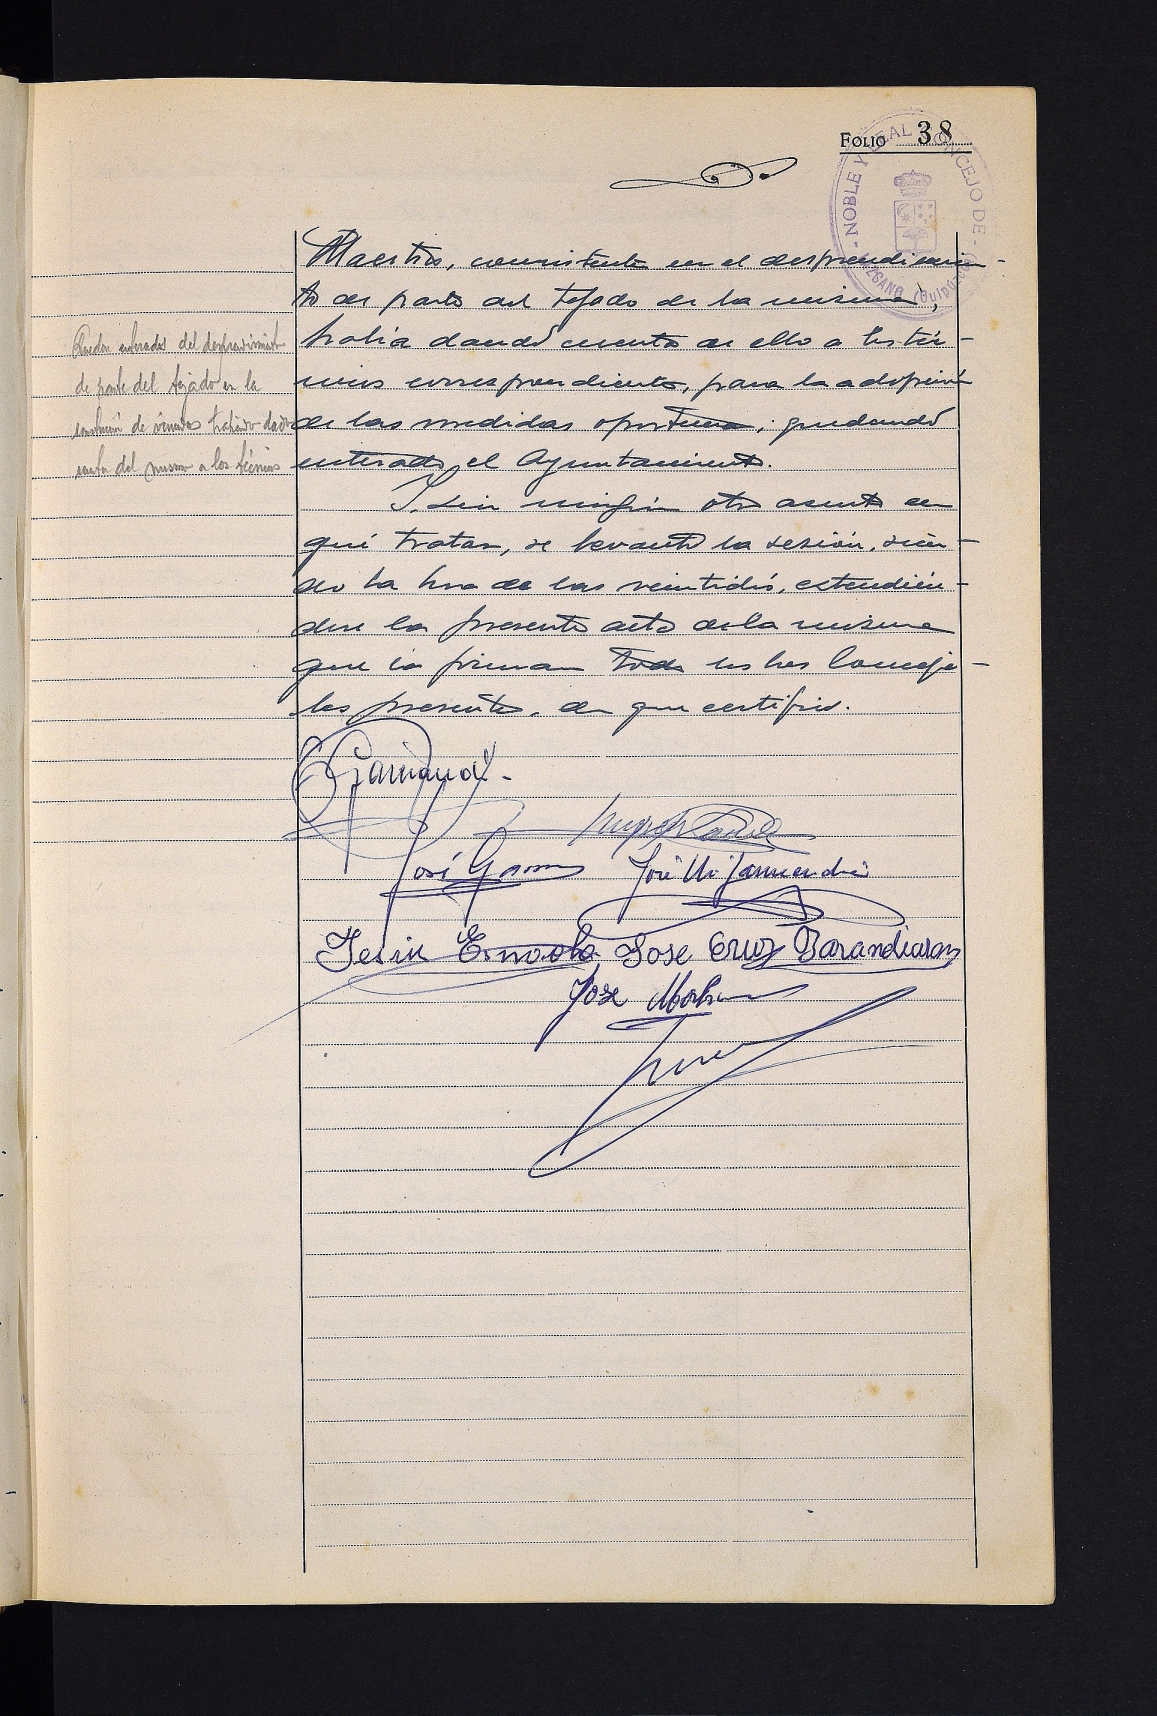 FOLIO 38
NOBLE Y LEAL CONCEJO DE (Guipúzcoa)
Maestros, consistente en el desprendimien-
to de parte del tejado de la misma,
había dando cuenta de ello a los téc-
nicos correspondientes, para la adopción
de las medidas oportunas; quedando
enterado el Ayuntamiento.
Quedan enterados del desprendimiento
de parte del tejado en la
construcción de viviendas habiendo dado
cuenta del mismo a los técnicos
Y sin ningún otro asunto de
qué tratar, se levantó la sesión, sien-
do la hora de las veintidós, extendién-
dose la presente acta de la misma
que la firman todos los Conceja-
les presentes, de que certifico.
José
José
Jose Cruz Barandiaran
Jose